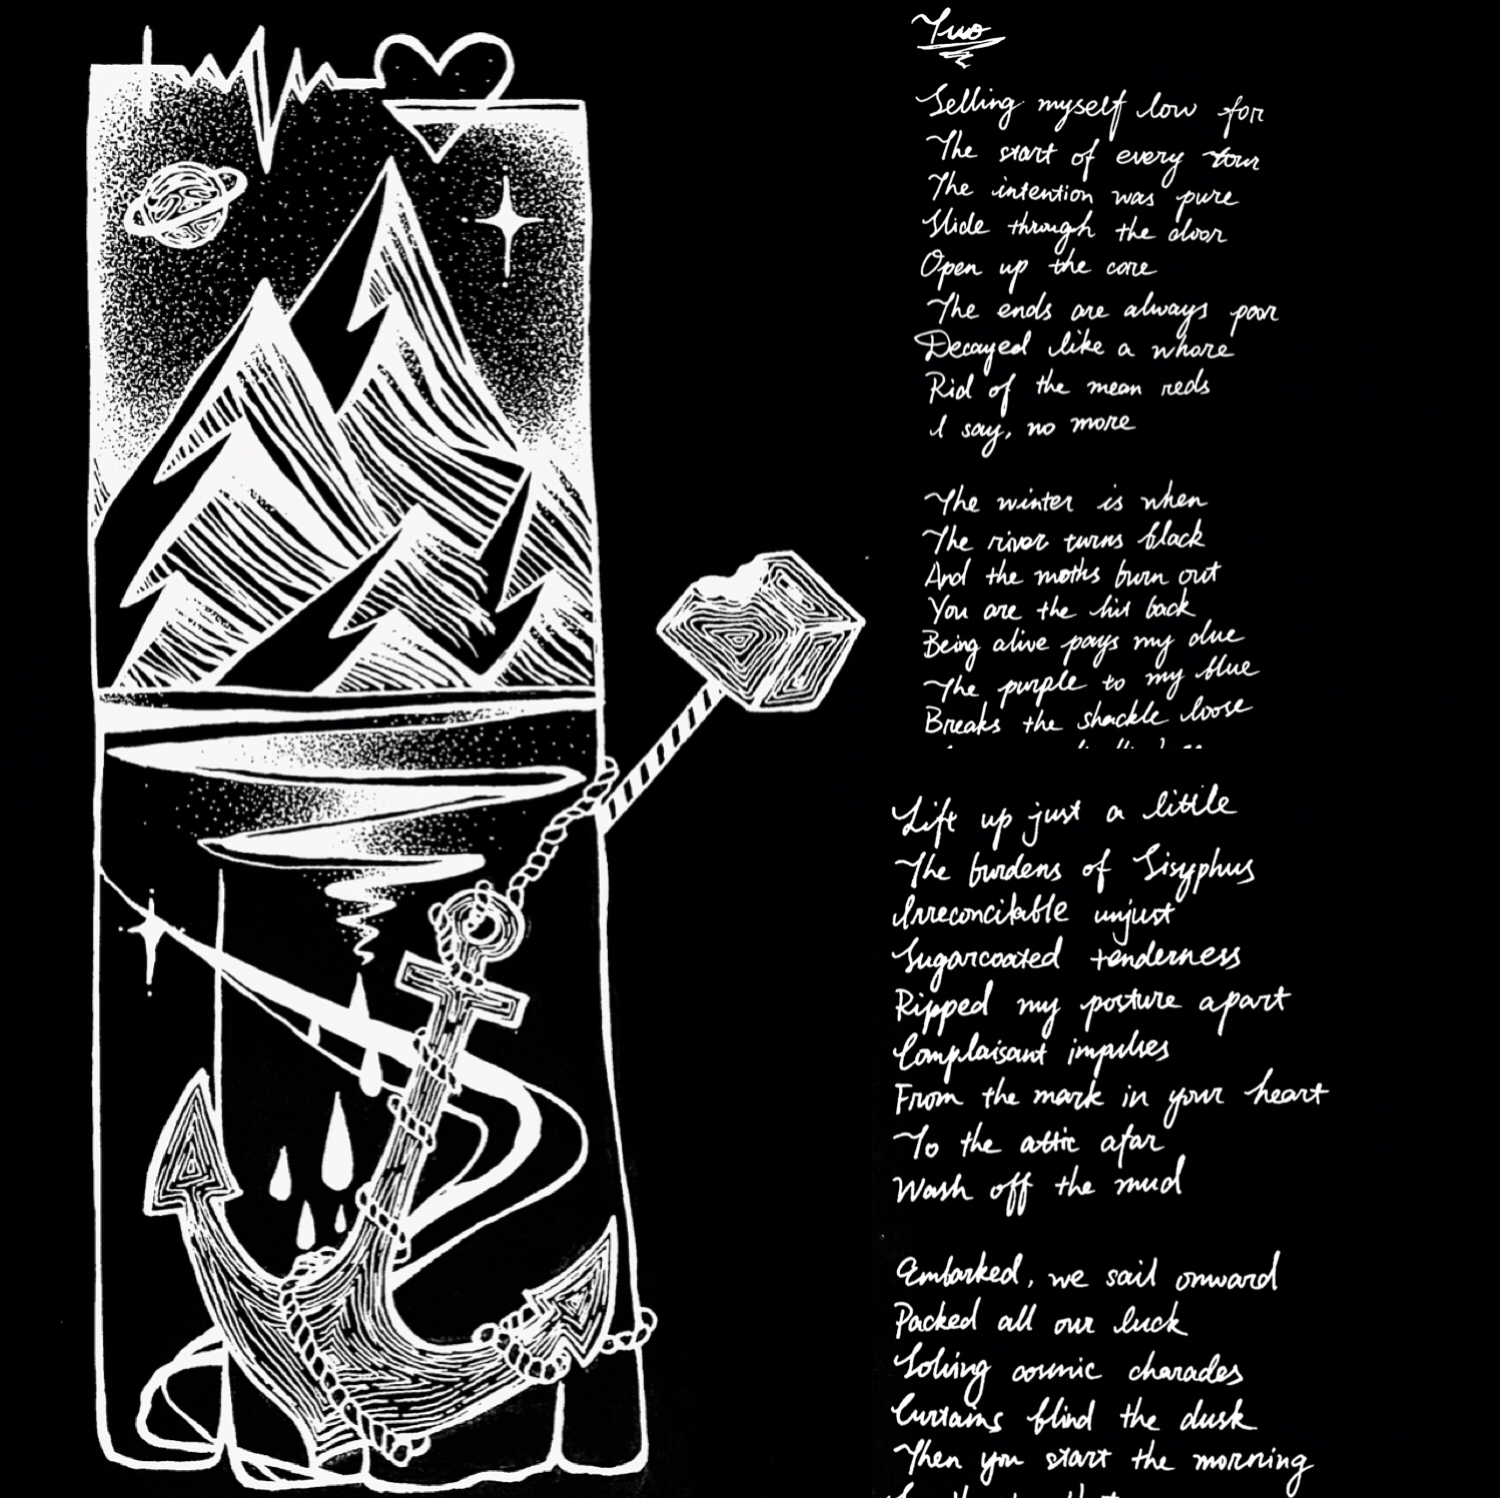 Two
Selling myself low for
The start of every tour
The intention was pure
Slide through the door
Open up the core
The ends are always poor
Decayed like a whore
Rid of the mean reds
I say, no more
The winter is when
The river turns black
And the moths burn out
You are the hit back
Being alive pays my due
The purple to my blue
Breaks the shackle loose
Lift up just a little
The burdens of Sisyphus
Irreconcilable unjust
Sugarcoated tenderness
Ripped my posture apart
Complaisant impulses
From the mark in your heart
To the attic afar
Wash off the mud
Embarked, we sail onward
Packed all our luck
Solving cosmic charades
Curtains blind the dusk
Then you start the morning